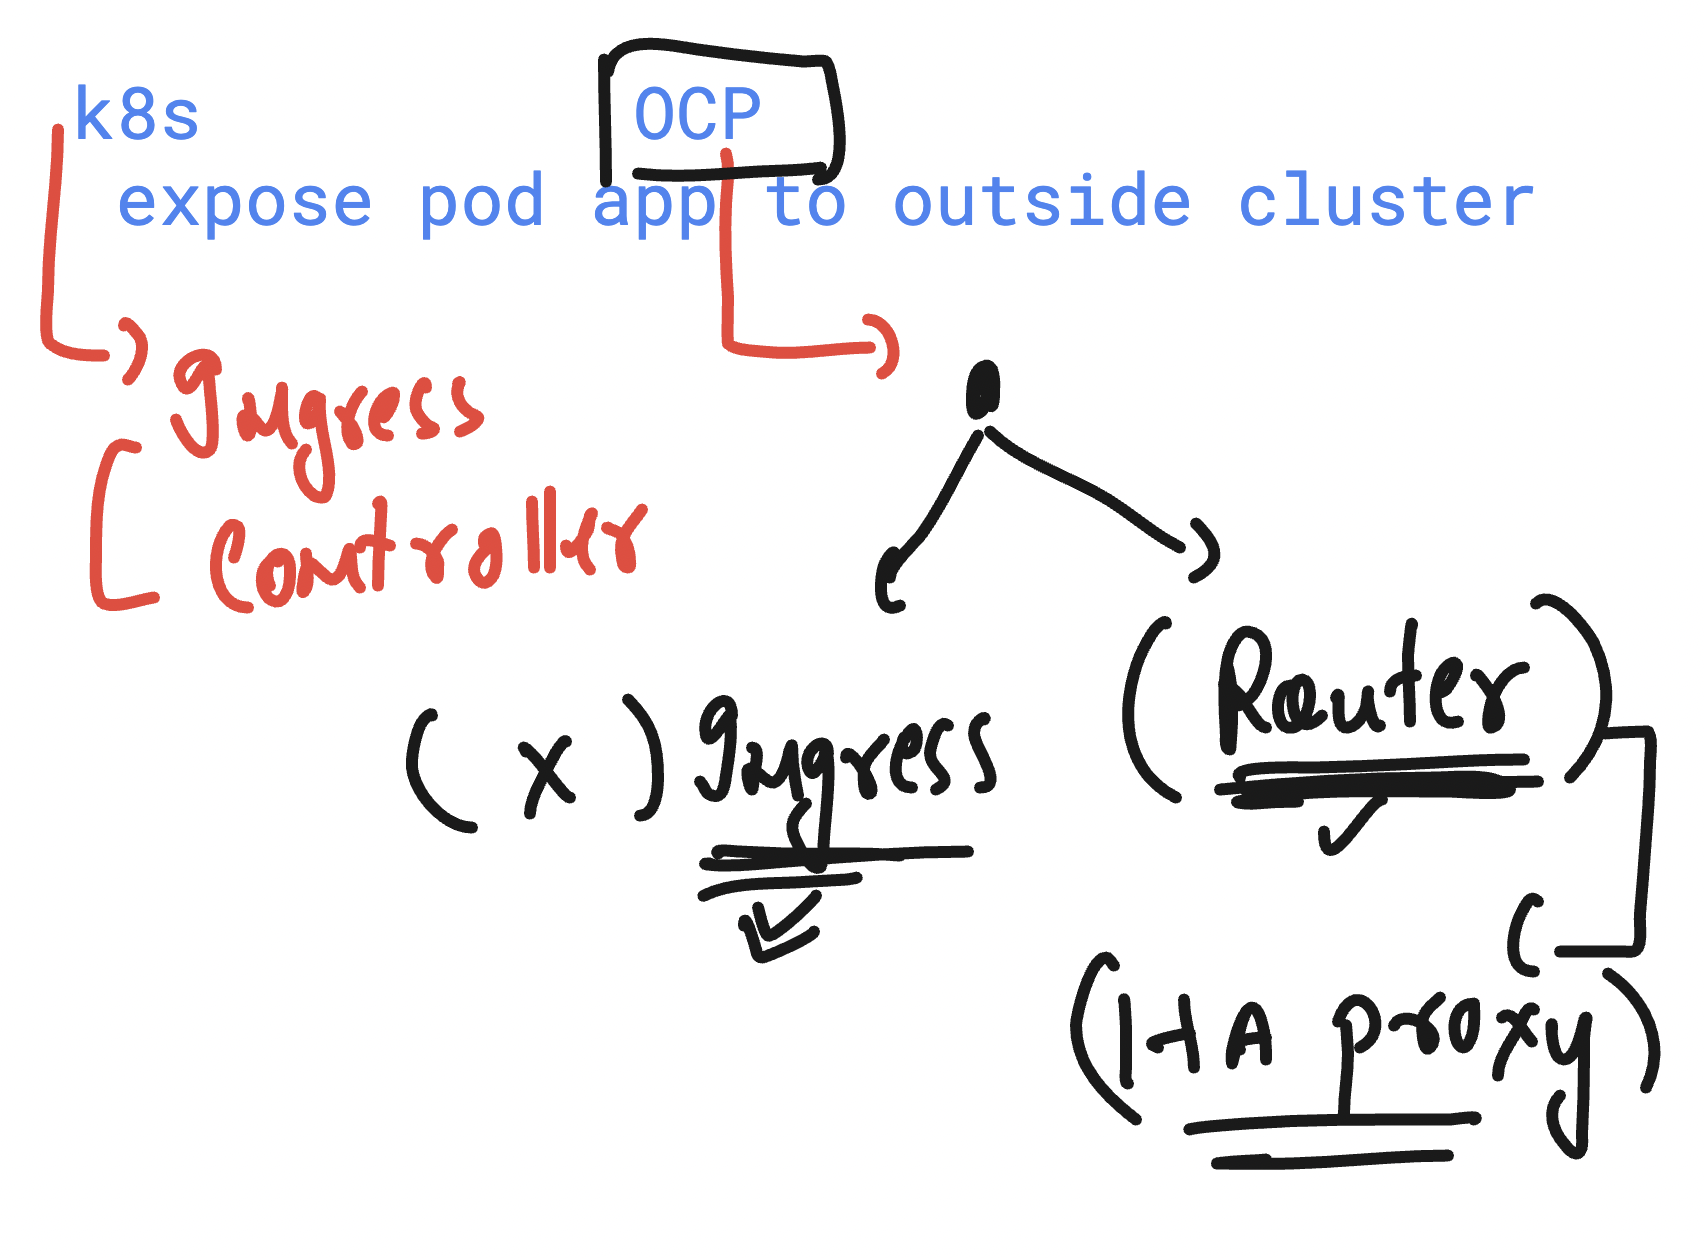 k8s OCP
expose pod app to outside cluster
Ingress
Controller
(Router)
(x) Ingress
(HA proxy)